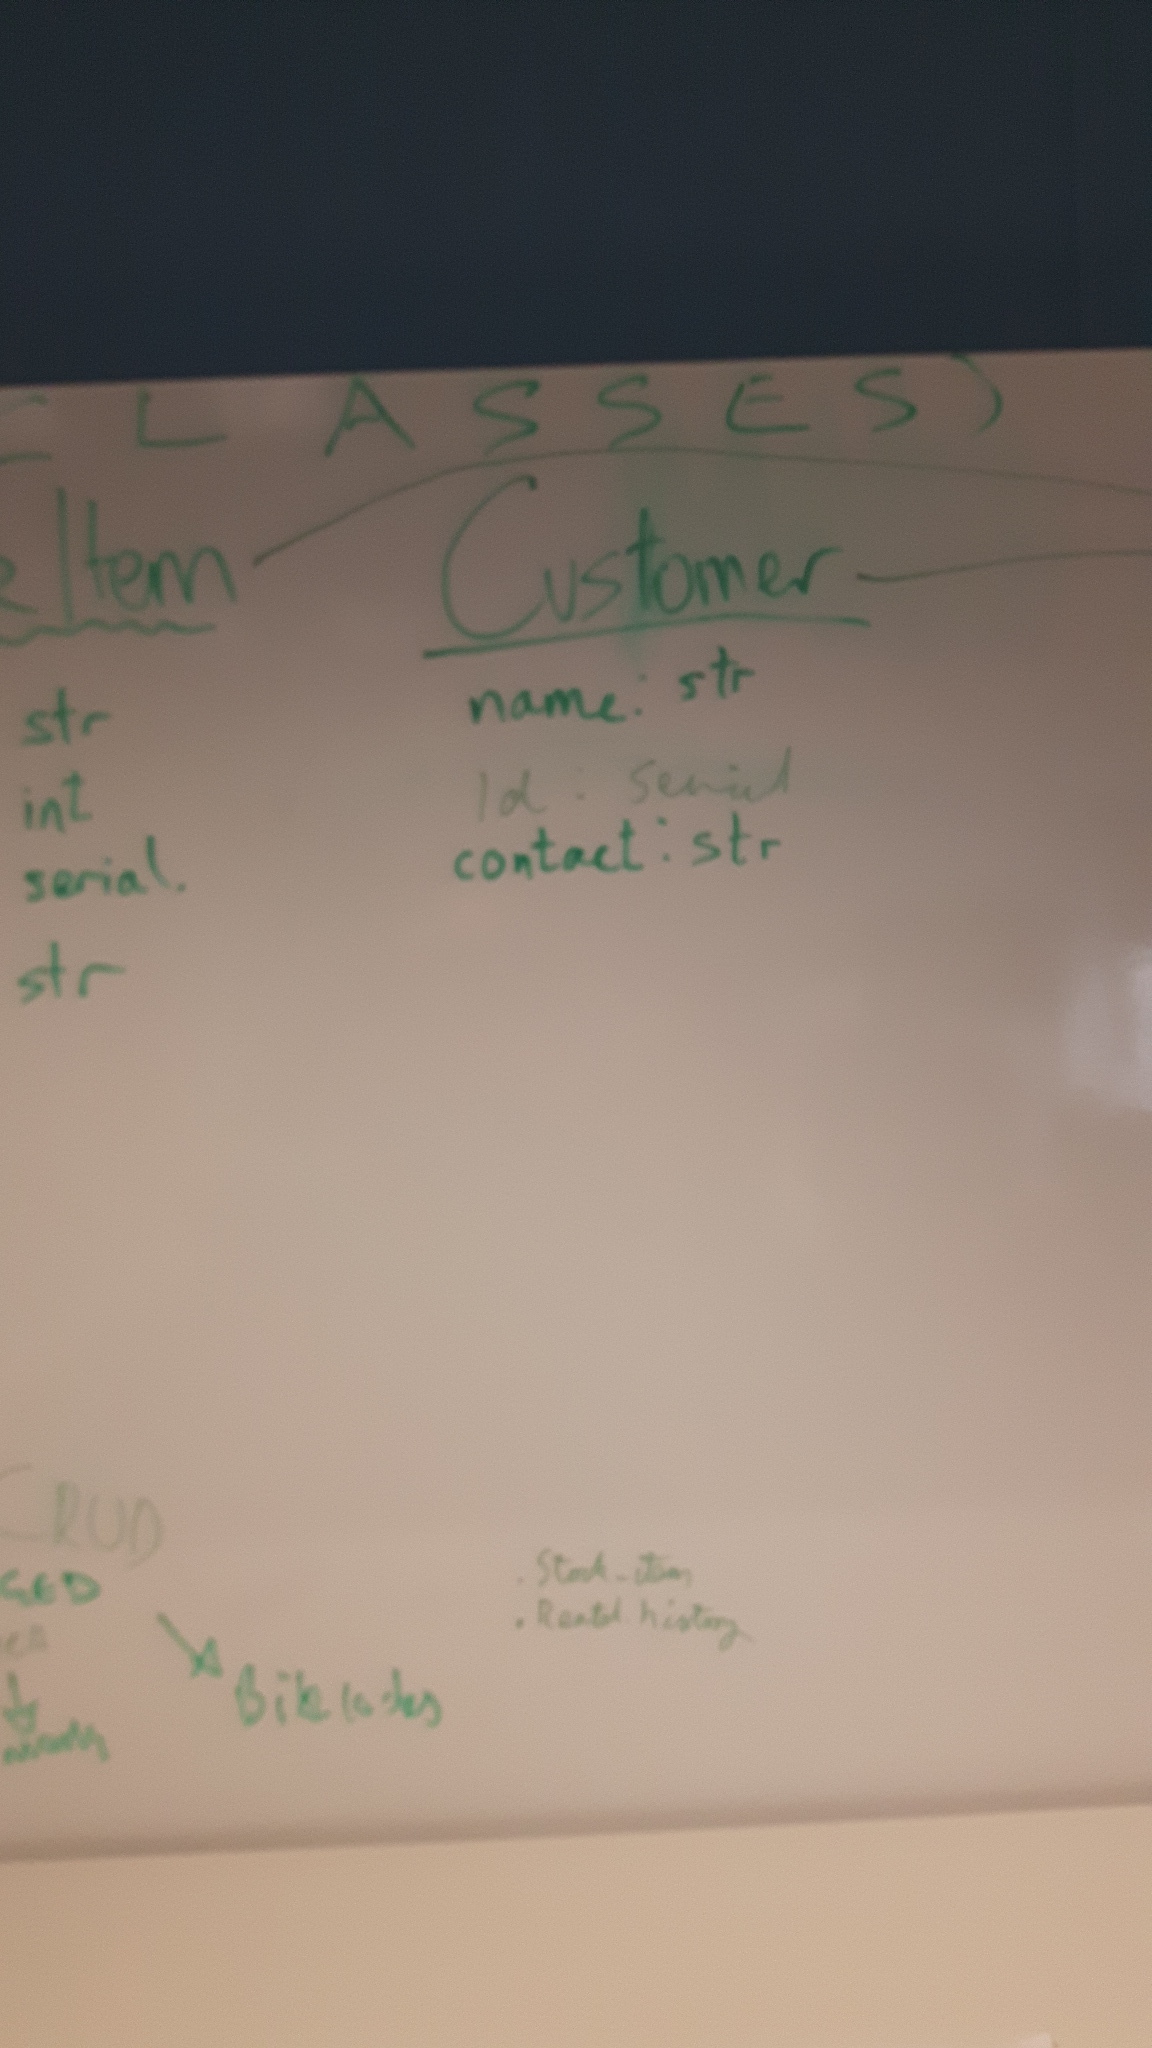 CLASSES)
e Item
str
int
serial.
str
Customer
name: str
Id: serial
contact: str
CRUD
Bike
. Stock_item
. Rental history